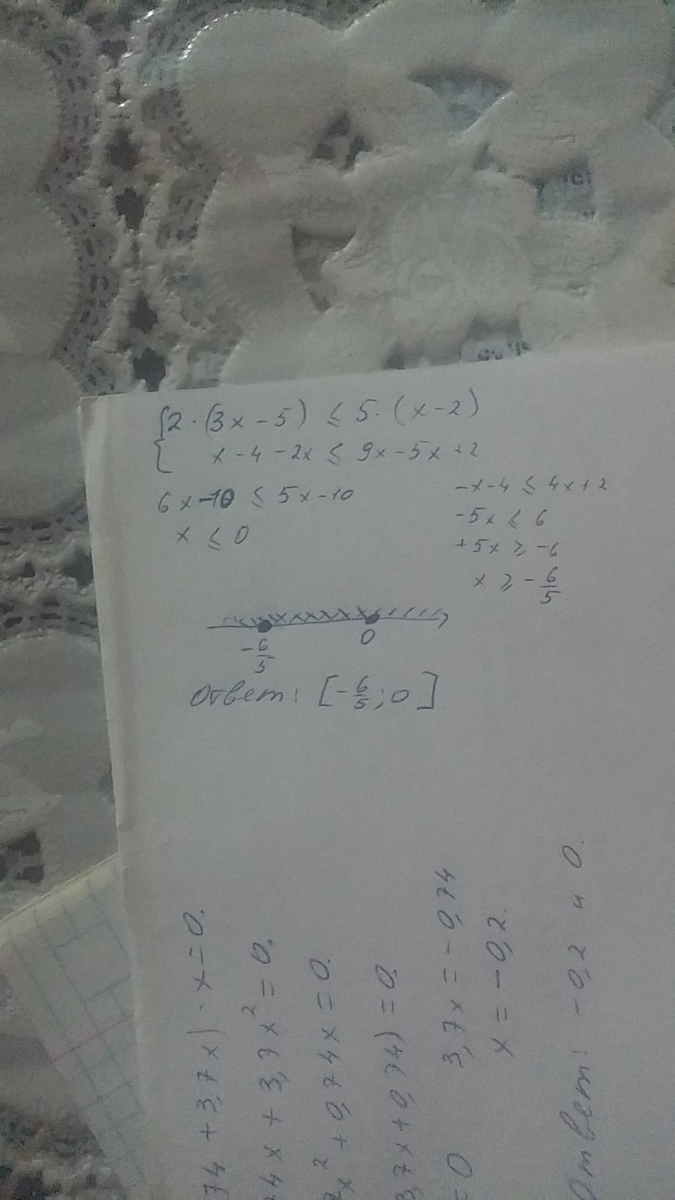 {2·(3x-5) ≤ 5·(x-2)
x-4-2x ≤ 9x-5x+2
6x-10 ≤ 5x-10
x ≤ 0
-x-4 ≤ 4x+2
-5x ≤ 6
+5x ≥ -6
x ≥ -6/5
-6/5 0
Ответ: [-6/5; 0]
74 + 3,7x) · x = 0.
4x + 3,7x² = 0.
x² + 0,74x = 0.
3,7x + 0,74) = 0.
= 0 3,7x = -0,74
x = -0,2.
Ответ: -0,2 и 0.